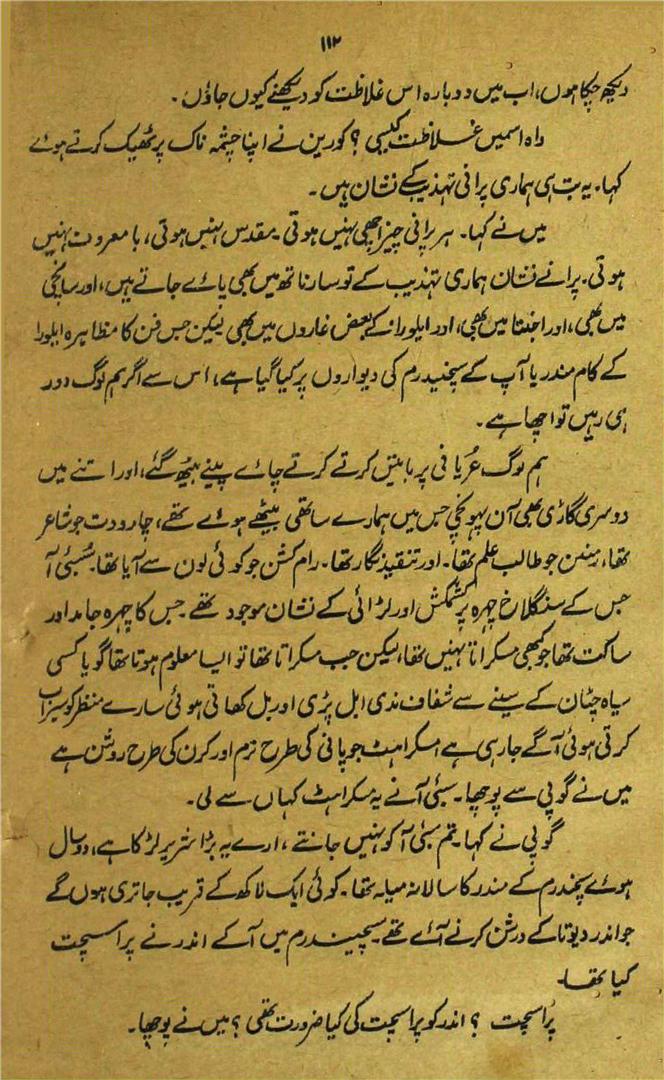 ۱۱۲
دیکھ چکا ہوں، اب میں دوبارہ اس غلاظت کو دیکھنے کیوں جاؤں۔
واہ اسمیں غلاظت کیسی؟ کورین نے اپنا چشمہ ناک پر ٹھیک کرتے ہوئے
کہا۔ یہ بت ہی ہماری پرانی تہذیب کے نشان ہیں۔
میں نے کہا۔ ہر پرانی چیز اچھی نہیں ہوتی۔ مقدس نہیں ہوتی، بامعروت نہیں
ہوتی۔ پرانے نشان ہماری تہذیب کے تو سارناتھ میں بھی پائے جاتے ہیں، اور سانچی
میں بھی، اور اجنتا میں بھی، اور ایلورا کے بعض غاروں میں بھی لیکن جس فن کا مظاہرہ ایلورا
کے کام مندر یا آپ کے سچنیدرم کی دیواروں پر کیا گیا ہے، اس سے اگر ہم لوگ دور
ہی رہیں تو اچھا ہے۔
ہم لوگ عُریانی پر باتیں کرتے کرتے چائے پینے بیٹھ گئے، اور اتنے میں
دوسری گاڑی بھی آن پہونچی جس میں ہمارے ساتھی بیٹھے ہوئے تھے، چارودت جو شاعر
تھا، رمنن جو طالب علم تھا۔ اور تنقیذ نگار تھا۔ رام کشن جو کوئی لون سے آیا تھا۔ سُبئی آ
جس کے سنگلاخ چہرہ پر کشمکش اور لڑائی کے نشان موجود تھے۔ جس کا چہرہ جامد اور
ساکت تھا جو کبھی مسکراتا نہیں تھا، لیکن جب مسکراتا تھا تو ایسا معلوم ہوتا تھا گویا کسی
سیاہ چٹان کے سینے سے شفاف ندی ابل پڑی اور بل کھاتی ہوئی سارے منظر کو سیراب
کرتی ہوئی آگے جارہی ہے، مسکراہٹ جو پانی کی طرح نرم اور کرن کی طرح روشن ہے
میں نے گوپی سے پوچھا۔ سبئی آ نے یہ مسکراہٹ کہاں سے لی۔
گوپی نے کہا۔ تم سبئی آ کو نہیں جانتے، ارے یہ بڑا شریر لڑکا ہے، دو سال
ہوئے سچندرم کے مندر کا سالانہ میلہ تھا۔ کوئی ایک لاکھ کے قریب جاتری ہوں گے
جو اندر دیوتا کے درشن کرنے آئے تھے۔ سچیندرم میں آ کے اندر نے پراسچت
کیا تھا۔
پراسچت؟ اندر کو پراسچت کی کیا ضرورت تھی؟ میں نے پوچھا۔